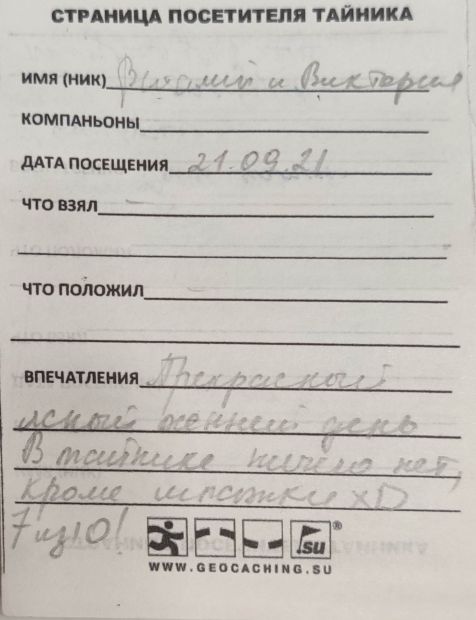 СТРАНИЦА ПОСЕТИТЕЛЯ ТАЙНИКА
ИМЯ (НИК) Виталий и Виктория
КОМПАНЬОНЫ
ДАТА ПОСЕЩЕНИЯ 21.09.21
ЧТО ВЗЯЛ –
ЧТО ПОЛОЖИЛ
ВПЕЧАТЛЕНИЯ Прекрасный
ясный осенний день
В тайнике ничего нет,
кроме xD
7 из 10!
.su®
WWW.GEOCACHING.SU